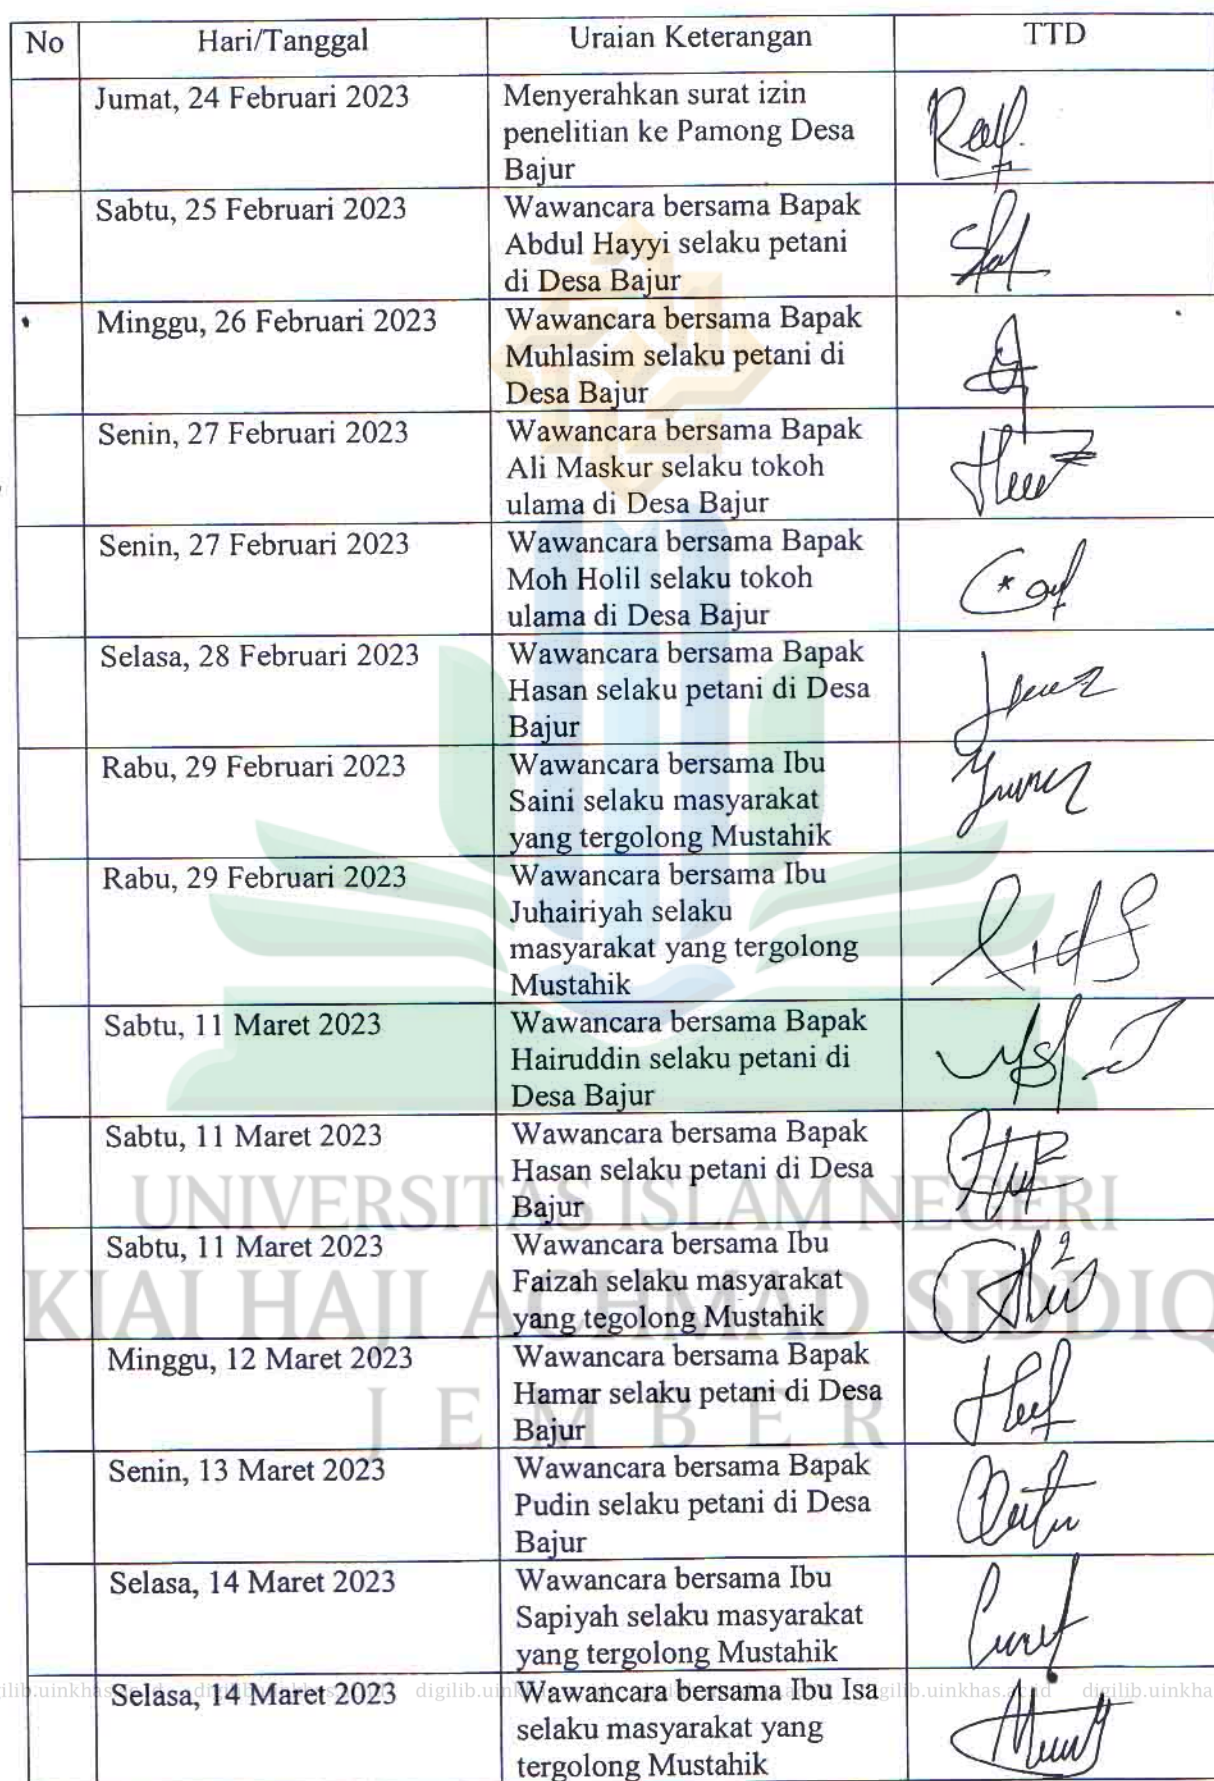 No Hari/Tanggal Uraian Keterangan TTD
Jumat, 24 Februari 2023 Menyerahkan surat izin
penelitian ke Pamong Desa
Bajur
Sabtu, 25 Februari 2023 Wawancara bersama Bapak
Abdul Hayyi selaku petani
di Desa Bajur
Minggu, 26 Februari 2023 Wawancara bersama Bapak
Muhlasim selaku petani di
Desa Bajur
Senin, 27 Februari 2023 Wawancara bersama Bapak
Ali Maskur selaku tokoh
ulama di Desa Bajur
Senin, 27 Februari 2023 Wawancara bersama Bapak
Moh Holil selaku tokoh
ulama di Desa Bajur
Selasa, 28 Februari 2023 Wawancara bersama Bapak
Hasan selaku petani di Desa
Bajur
Rabu, 29 Februari 2023 Wawancara bersama Ibu
Saini selaku masyarakat
yang tergolong Mustahik
Rabu, 29 Februari 2023 Wawancara bersama Ibu
Juhairiyah selaku
masyarakat yang tergolong
Mustahik
Sabtu, 11 Maret 2023 Wawancara bersama Bapak
Hairuddin selaku petani di
Desa Bajur
Sabtu, 11 Maret 2023 Wawancara bersama Bapak
Hasan selaku petani di Desa
Bajur
UNIVERSITAS ISLAM NEGERI
Sabtu, 11 Maret 2023 Wawancara bersama Ibu
Faizah selaku masyarakat
yang tegolong Mustahik
KIAI HAJI ACHMAD SIDDIQ
Minggu, 12 Maret 2023 Wawancara bersama Bapak
Hamar selaku petani di Desa
Bajur
JEMBER
Senin, 13 Maret 2023 Wawancara bersama Bapak
Pudin selaku petani di Desa
Bajur
Selasa, 14 Maret 2023 Wawancara bersama Ibu
Sapiyah selaku masyarakat
yang tergolong Mustahik
Selasa, 14 Maret 2023 Wawancara bersama Ibu Isa
selaku masyarakat yang
tergolong Mustahik